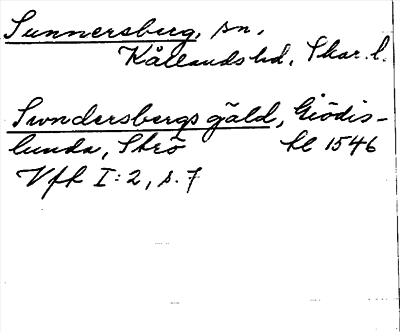 Sunnersberg, sn.
Kållands hd, Skar. l.
Swndersbergs gäld, Giödis-
lunda, Skrö hl 1546
Vfh I:2, s. 7